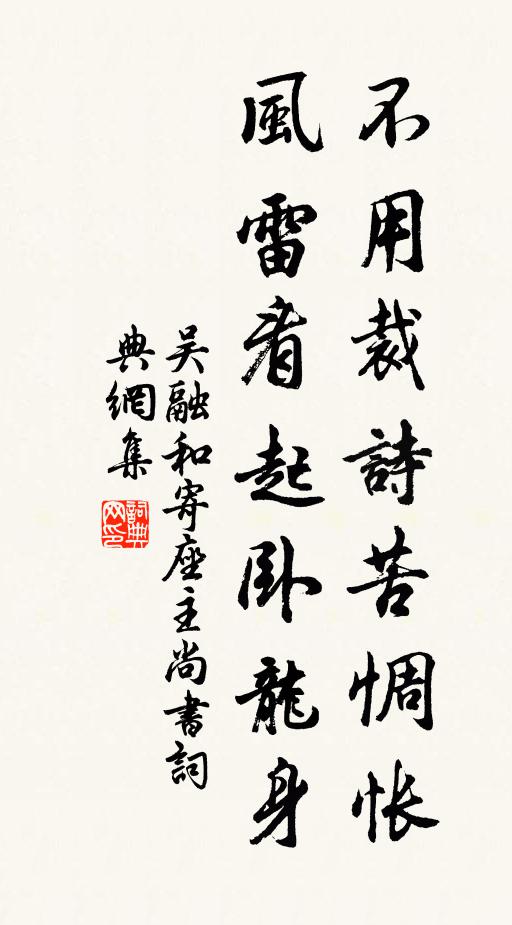 不用裁詩苦惆悵
風雷看起卧龍身
吴融和寄座主尚書詞
典網集
詞典
网印